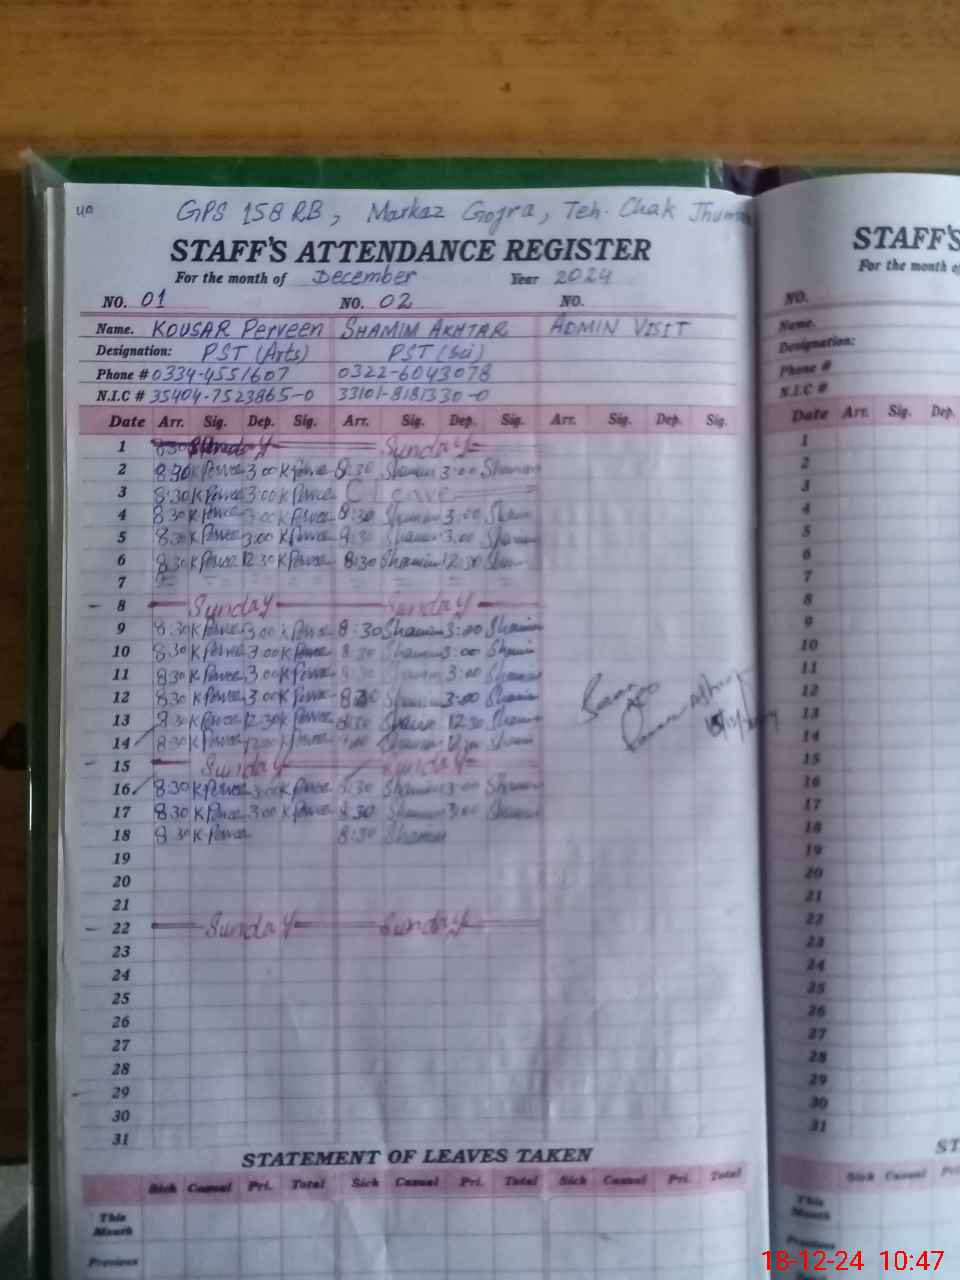 GPS 158 RB, Markaz Gojra, Teh. Chak Jhum
STAFF'S ATTENDANCE REGISTER
For the month of December Year 2024
NO. 01 NO. 02 NO.
Name. KOUSAR Perveen SHAMIM AKHTAR ADMIN VISIT
Designation: PST (Arts) PST (Sci)
Phone # 0334-4551607 0322-6043078
N.I.C # 35404-7523865-0 33101-8181330-0
Date Arr. Sig. Dep. Sig. Arr. Sig. Dep. Sig. Arr. Sig. Dep. Sig.
1 Sunday Sunday
2 8:30 3:00 8:30 Shamim 3:00 Shamim
3 8:30 3:00 C Leave
4 8:30 3:00 8:30 Shamim 3:00 Sham
5 8:30 3:00 8:30 Shamim 3:00 Sham
6 8:30 12:30 8:30 Shamim 12:30
7
8 Sunday Sunday
9 8:30 3:00 8:30 Shamim 3:00 Shamim
10 8:30 3:00 8:30 Shamim 3:00 Shamim
11 8:30 3:00 8:30 3:00 Shamim
12 8:30 3:00 8:30 Shamim 3:00 Shamim
13 8:30 12:30 8:30 Shamim 12:30 Shamim
14 8:30 Shamim
15 Sunday Sunday
16 8:30 3:00 8:30 Shamim 3:00 Shamim
17 8:30 3:00 8:30 Shamim 3:00 Shamim
18 8:30 8:30 Shamim
19
20
21
22 Sunday Sunday
23
24
25
26
27
28
29
30
31
STATEMENT OF LEAVES TAKEN
Sick Casual Pri. Total Sick Casual Pri. Total Sick Casual Pri. Total
This Month
Previous
STAFF'S
For the month of
NO.
Name.
Designation:
Phone #
N.I.C #
Date Arr. Sig. Dep.
1
2
3
4
5
6
7
8
9
10
11
12
13
14
15
16
17
18
19
20
21
22
23
24
25
26
27
28
29
30
31
ST
Sick Casual Pri.
This Month
Previous
18-12-24 10:47